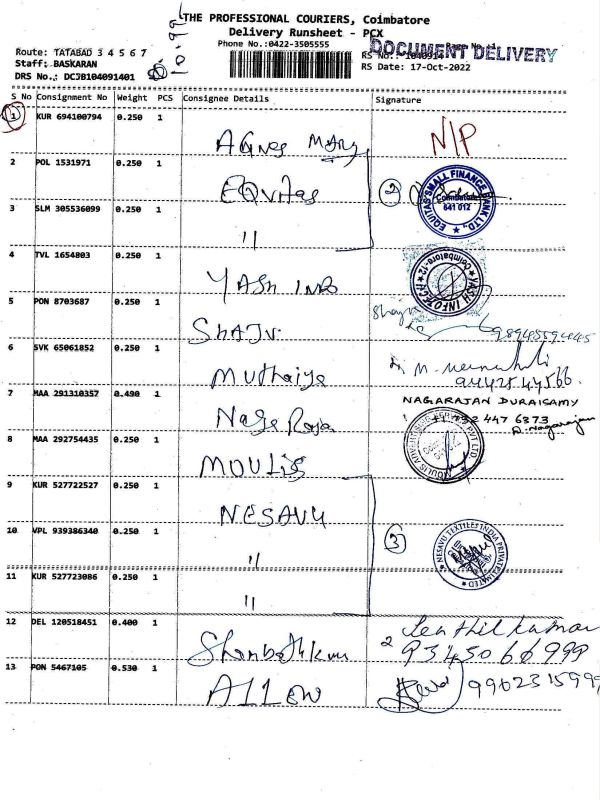 THE PROFESSIONAL COURIERS, Coimbatore
Delivery Runsheet - PCX
Phone No.:0422-3505555
DOCUMENT DELIVERY
Route: TATABAD 3 4 5 6 7
Staff: BASKARAN
RS No.: 1040914
DRS No.: DCJB104091401
RS Date: 17-Oct-2022
S No Consignment No Weight PCS Consignee Details Signature
1 KUR 694100794 0.250 1 Agnes Mary N/P
2 POL 1531971 0.250 1 EQUitas 2
EQUITAS SMALL FINANCE BANK LTD., Coimbatore 641 012
3 SLM 305536099 0.250 1 "
4 TVL 1654803 0.250 1 YASH INFO
YASH INFOTECH Coimbatore-12
5 PON 8703687 0.250 1 SHAJU 98945594445
6 SVK 65061852 0.250 1 Muthaiya
7 MAA 291310357 0.490 1 Naga Raja NAGARAJAN DURAISAMY
447 6373
D. Nagarajan
8 MAA 292754435 0.250 1 MOULIS
9 KUR 527722527 0.250 1 NESAVU
10 VPL 939386340 0.250 1 " 3
NESAVU TEXTILES INDIA PRIVATE LIMITED
11 KUR 527723086 0.250 1 "
12 DEL 120518451 0.400 1 2 Senthil kumar
9345066999
13 PON 5467105 0.530 1 Allen